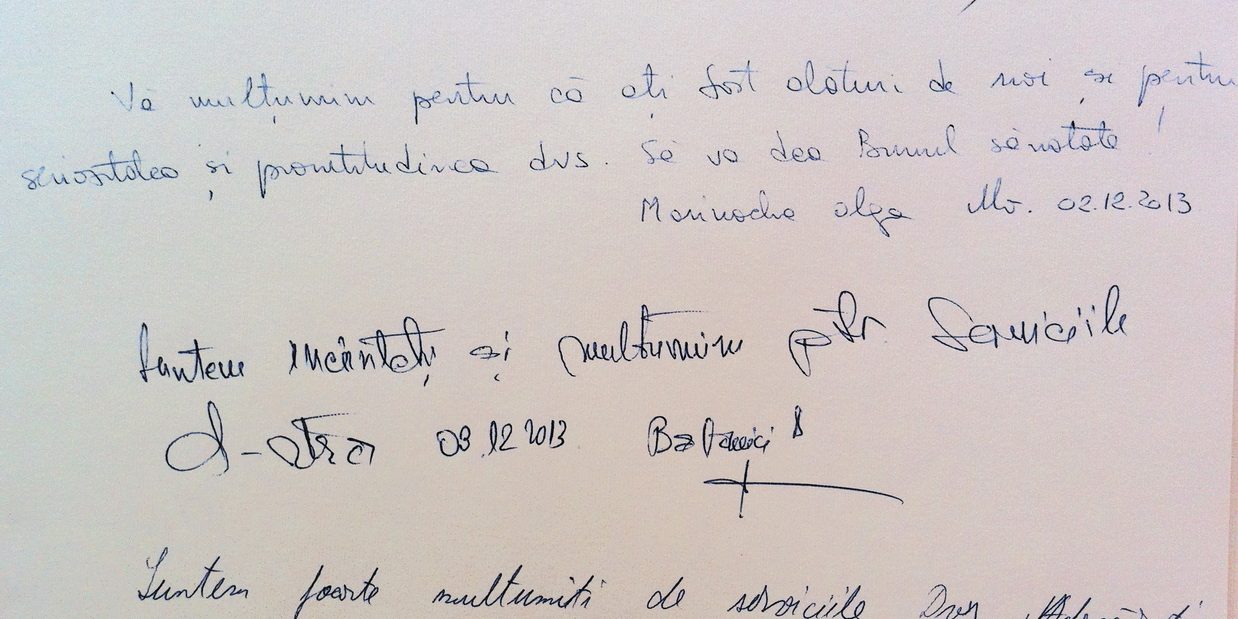 Vă mulțumim pentru că ați fost alături de noi și pentru
seriozitatea și promtitudinea dvs. Să va dea Bunul sănătate!
Olga 02.12.2013
Suntem încântați și mulțumim ptr. Serviciile
d-stra 03.12 2013
Suntem foarte multumiti de serviciile Dvs